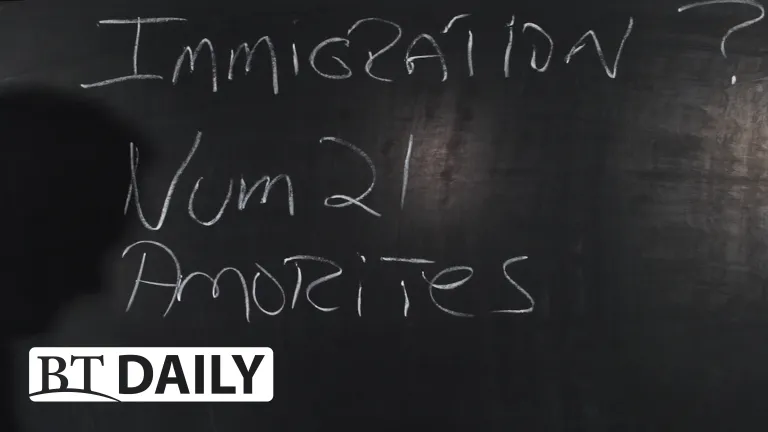 IMMIGRATION ?
NUM 21
AMORITES
BT DAILY